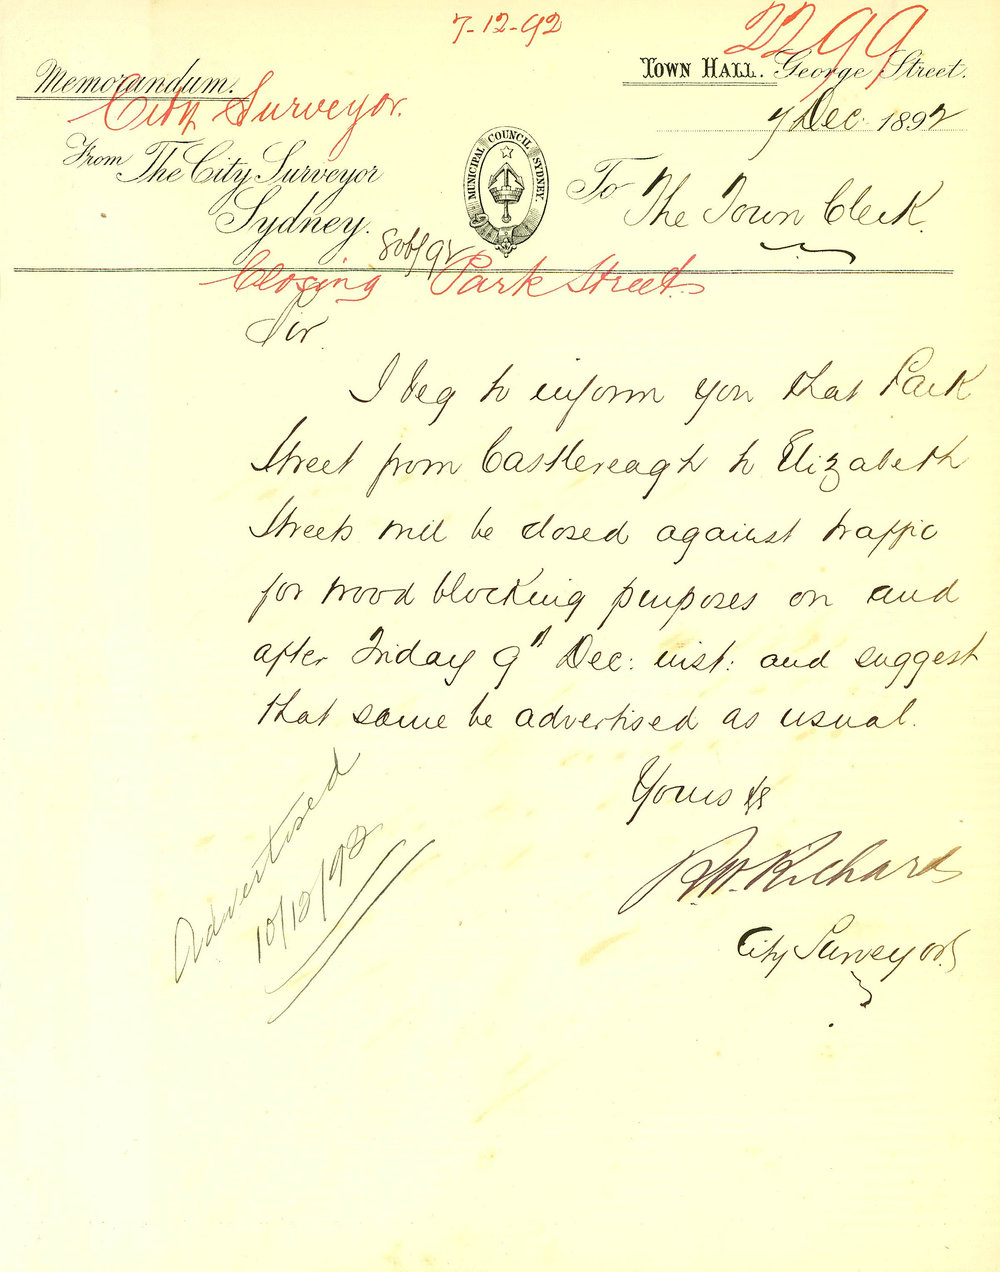 7-12-92
2299
Memorandum.
Town Hall. George Street.
City Surveyor.
7 Dec 1892
From The City Surveyor
Sydney.
MUNICIPAL COUNCIL SYDNEY.
To The Town Clerk.
806/92
Closing Park Street.
Sir
I beg to inform you that Park
Street from Castlereagh to Elizabeth
Streets will be closed against traffic
for wood blocking purposes on and
after Friday 9th Dec: inst: and suggest
that same be advertised as usual.
Yours &c
R.W. Richards
City Surveyor
Advertised
10/12/92